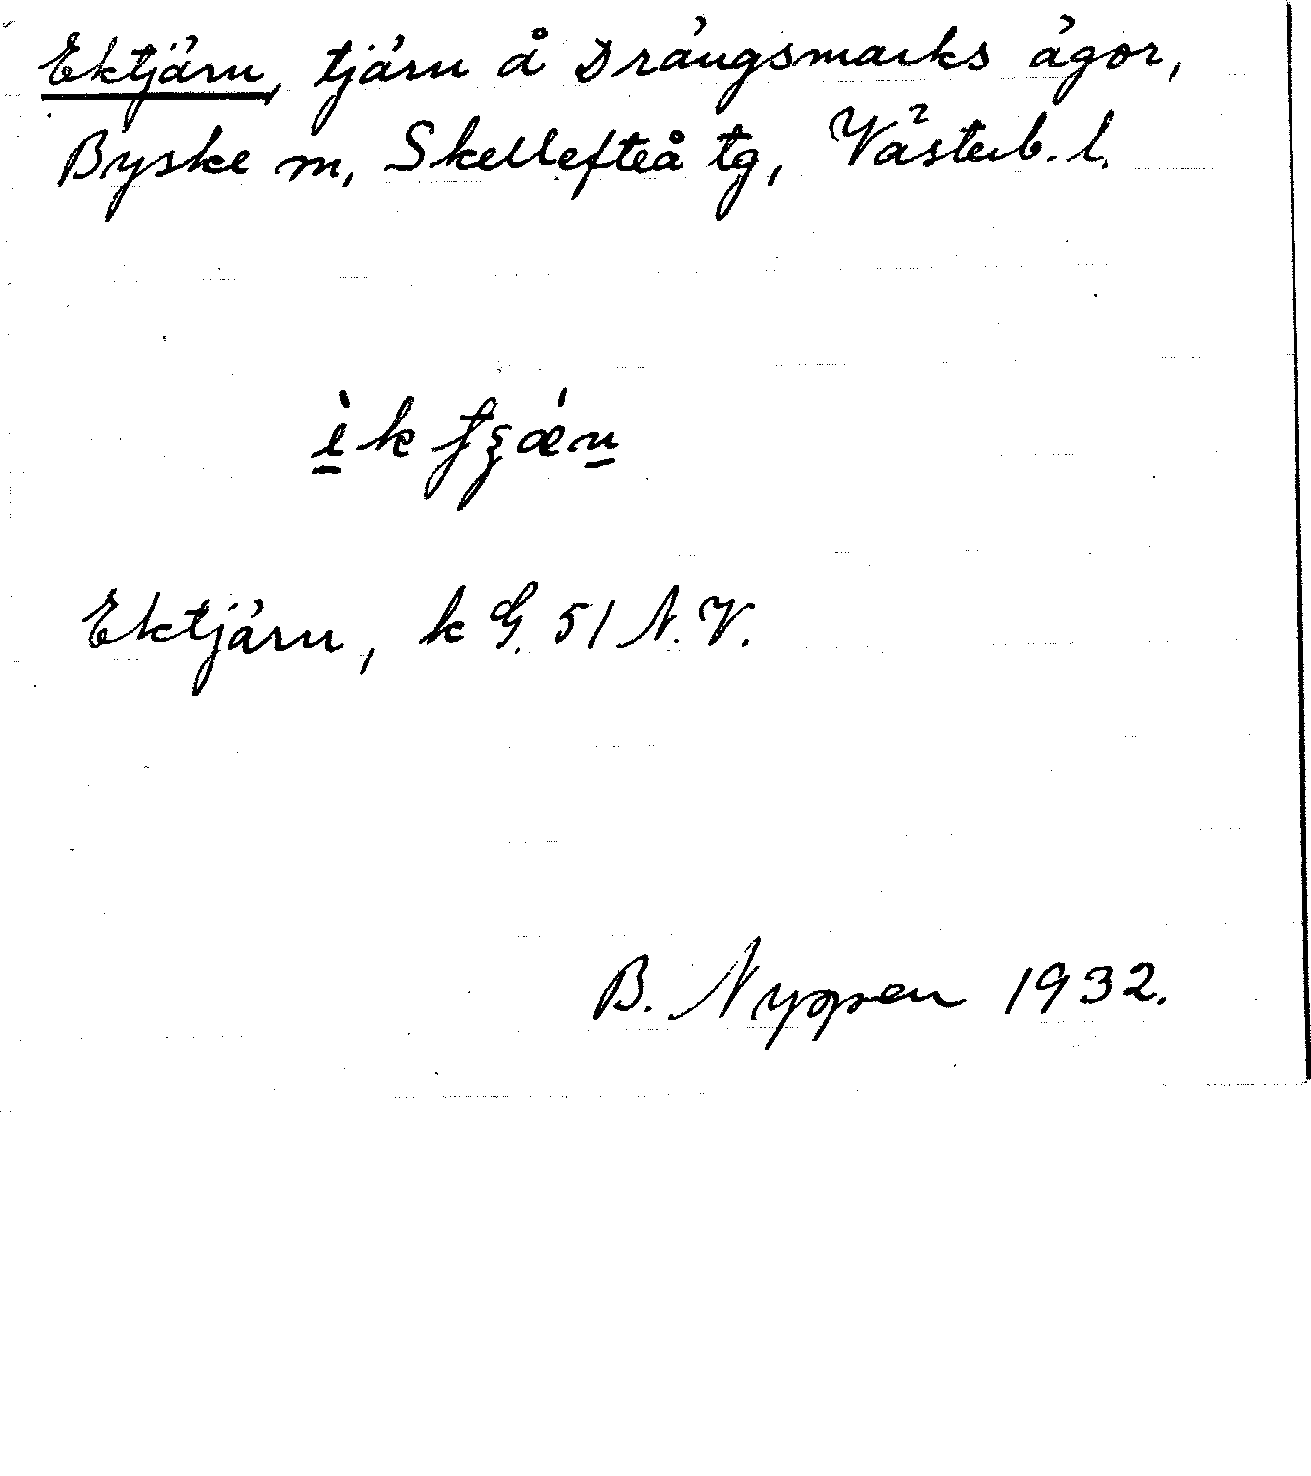 Ektjärn, tjärn å Drängsmarks ägor,
Byske sn, Skellefteå tg, Västerb. l.
Ektjärn, k G. 51 N.V.
B. Nyppen 1932.